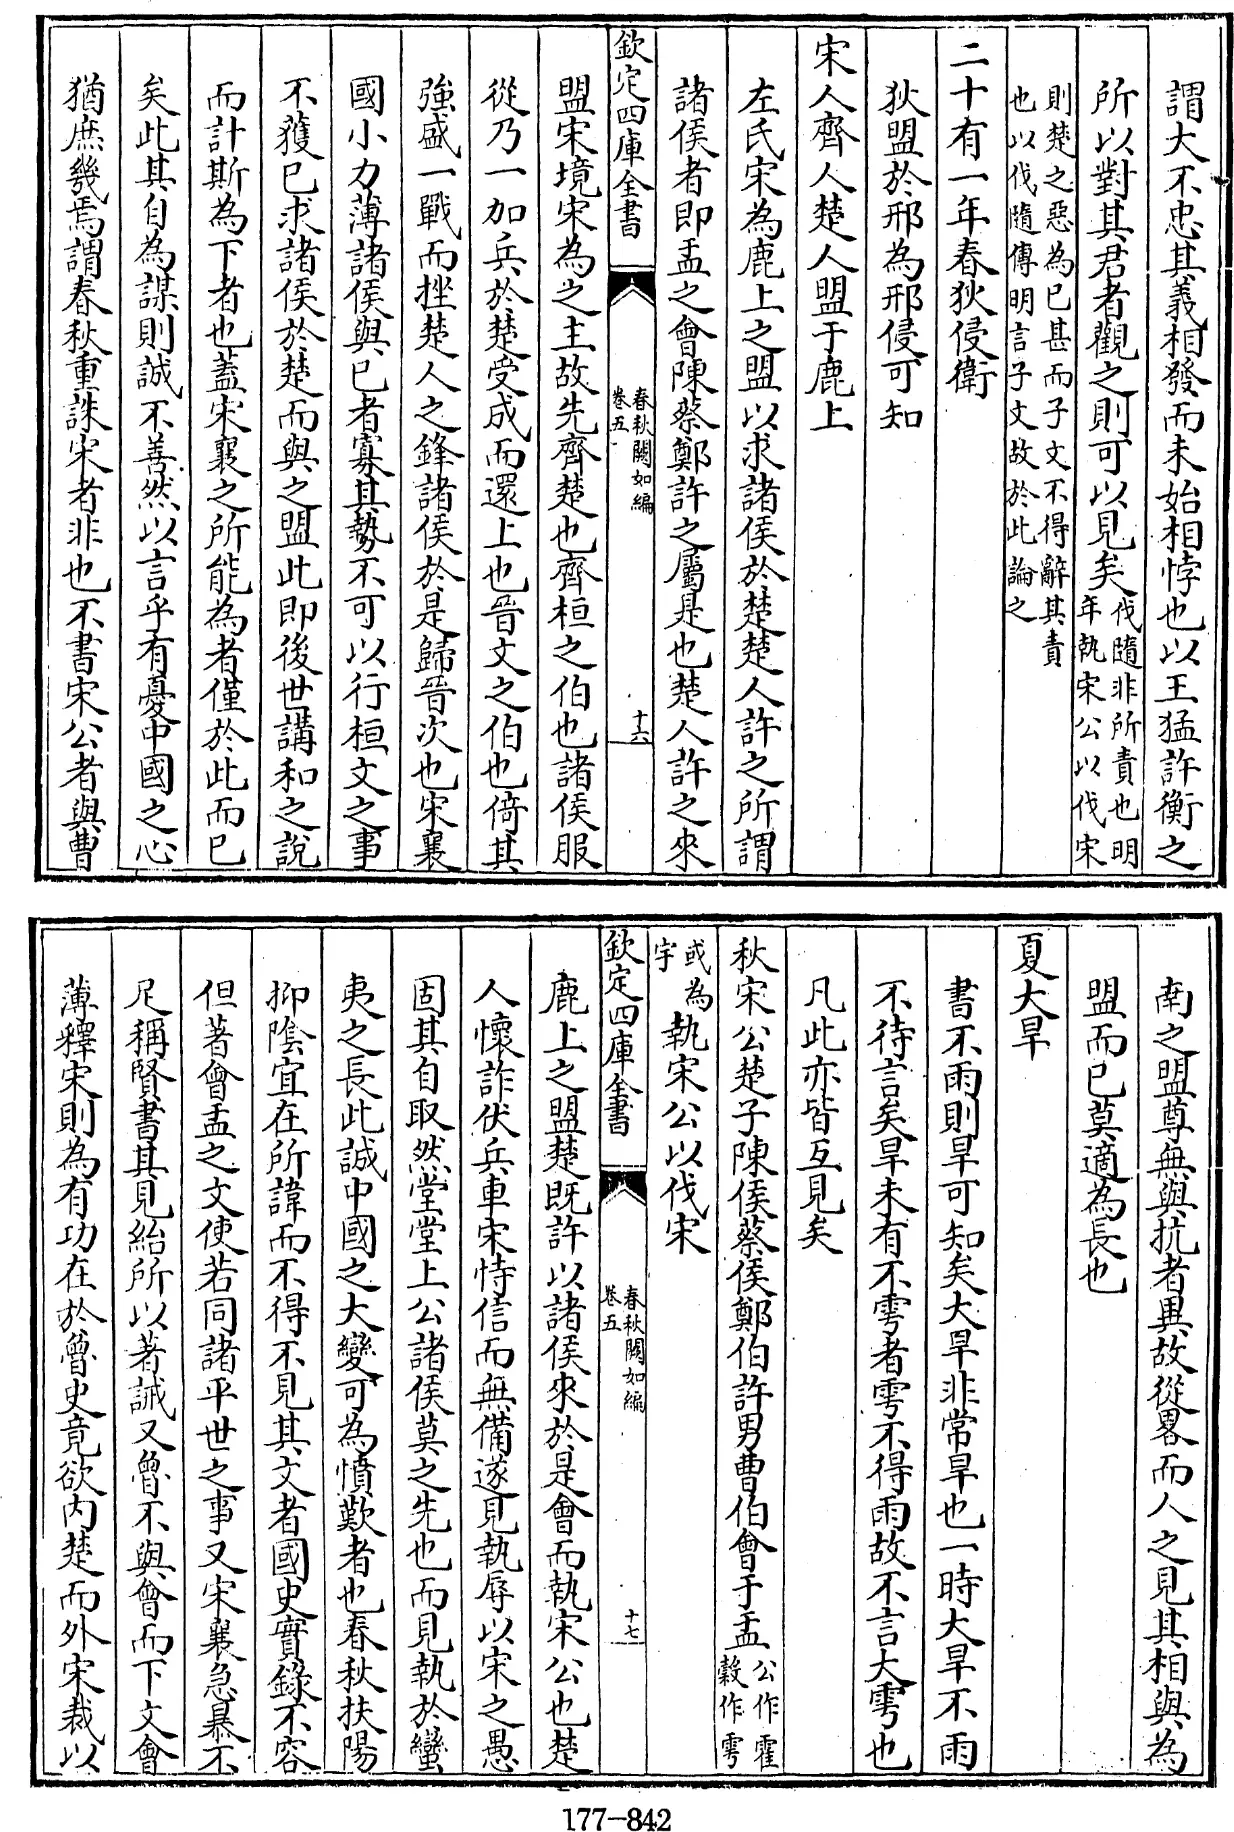 謂大不忠其義相發而未始相悖也以王猛許衡之
所以對其君者觀之則可以見矣伐隨非所責也明
年執宋公以伐宋
則楚之惡為已甚而子文不得辭其責
也以伐隨傳明言子文故於此論之
二十有一年春狄侵衛
狄盟於邢為邢侵可知
宋人齊人楚人盟于鹿上
左氏宋為鹿上之盟以求諸侯於楚楚人許之所謂
諸侯者即盂之會陳蔡鄭許之屬是也楚人許之來
欽定四庫全書
春秋闕如編
卷五
十六
盟宋境宋為之主故先齊楚也齊桓之伯也諸侯服
從乃一加兵於楚受成而還上也晉文之伯也倚其
強盛一戰而挫楚人之鋒諸侯於是歸晉次也宋襄
國小力薄諸侯與已者寡其勢不可以行桓文之事
不獲已求諸侯於楚而與之盟此即後世講和之說
而計斯為下者也蓋宋襄之所能為者僅於此而已
矣此其自為謀則誠不善然以言乎有憂中國之心
猶庶幾焉謂春秋重誅宋者非也不書宋公者與曹
南之盟尊無與抗者異故從畧而人之見其相與為
盟而已莫適為長也
夏大旱
書不雨則旱可知矣大旱非常旱也一時大旱不雨
不待言矣旱未有不雩者雩不得雨故不言大雩也
凡此亦皆互見矣
秋宋公楚子陳侯蔡侯鄭伯許男曹伯會于盂公作霍
穀作雩
或為
宇執宋公以伐宋
欽定四庫全書
春秋闕如編
卷五
十七
鹿上之盟楚既許以諸侯來於是會而執宋公也楚
人懷詐伏兵車宋恃信而無備遂見執辱以宋之愚
固其自取然堂堂上公諸侯莫之先也而見執於蠻
夷之長此誠中國之大變可為憤歎者也春秋扶陽
抑陰宜在所諱而不得不見其文者國史實錄不容
但著會盂之文使若同諸平世之事又宋襄急暴不
足稱賢書其見紿所以著誡又魯不與會而下文會
薄釋宋則為有功在於魯史竟欲內楚而外宋裁以
177-842